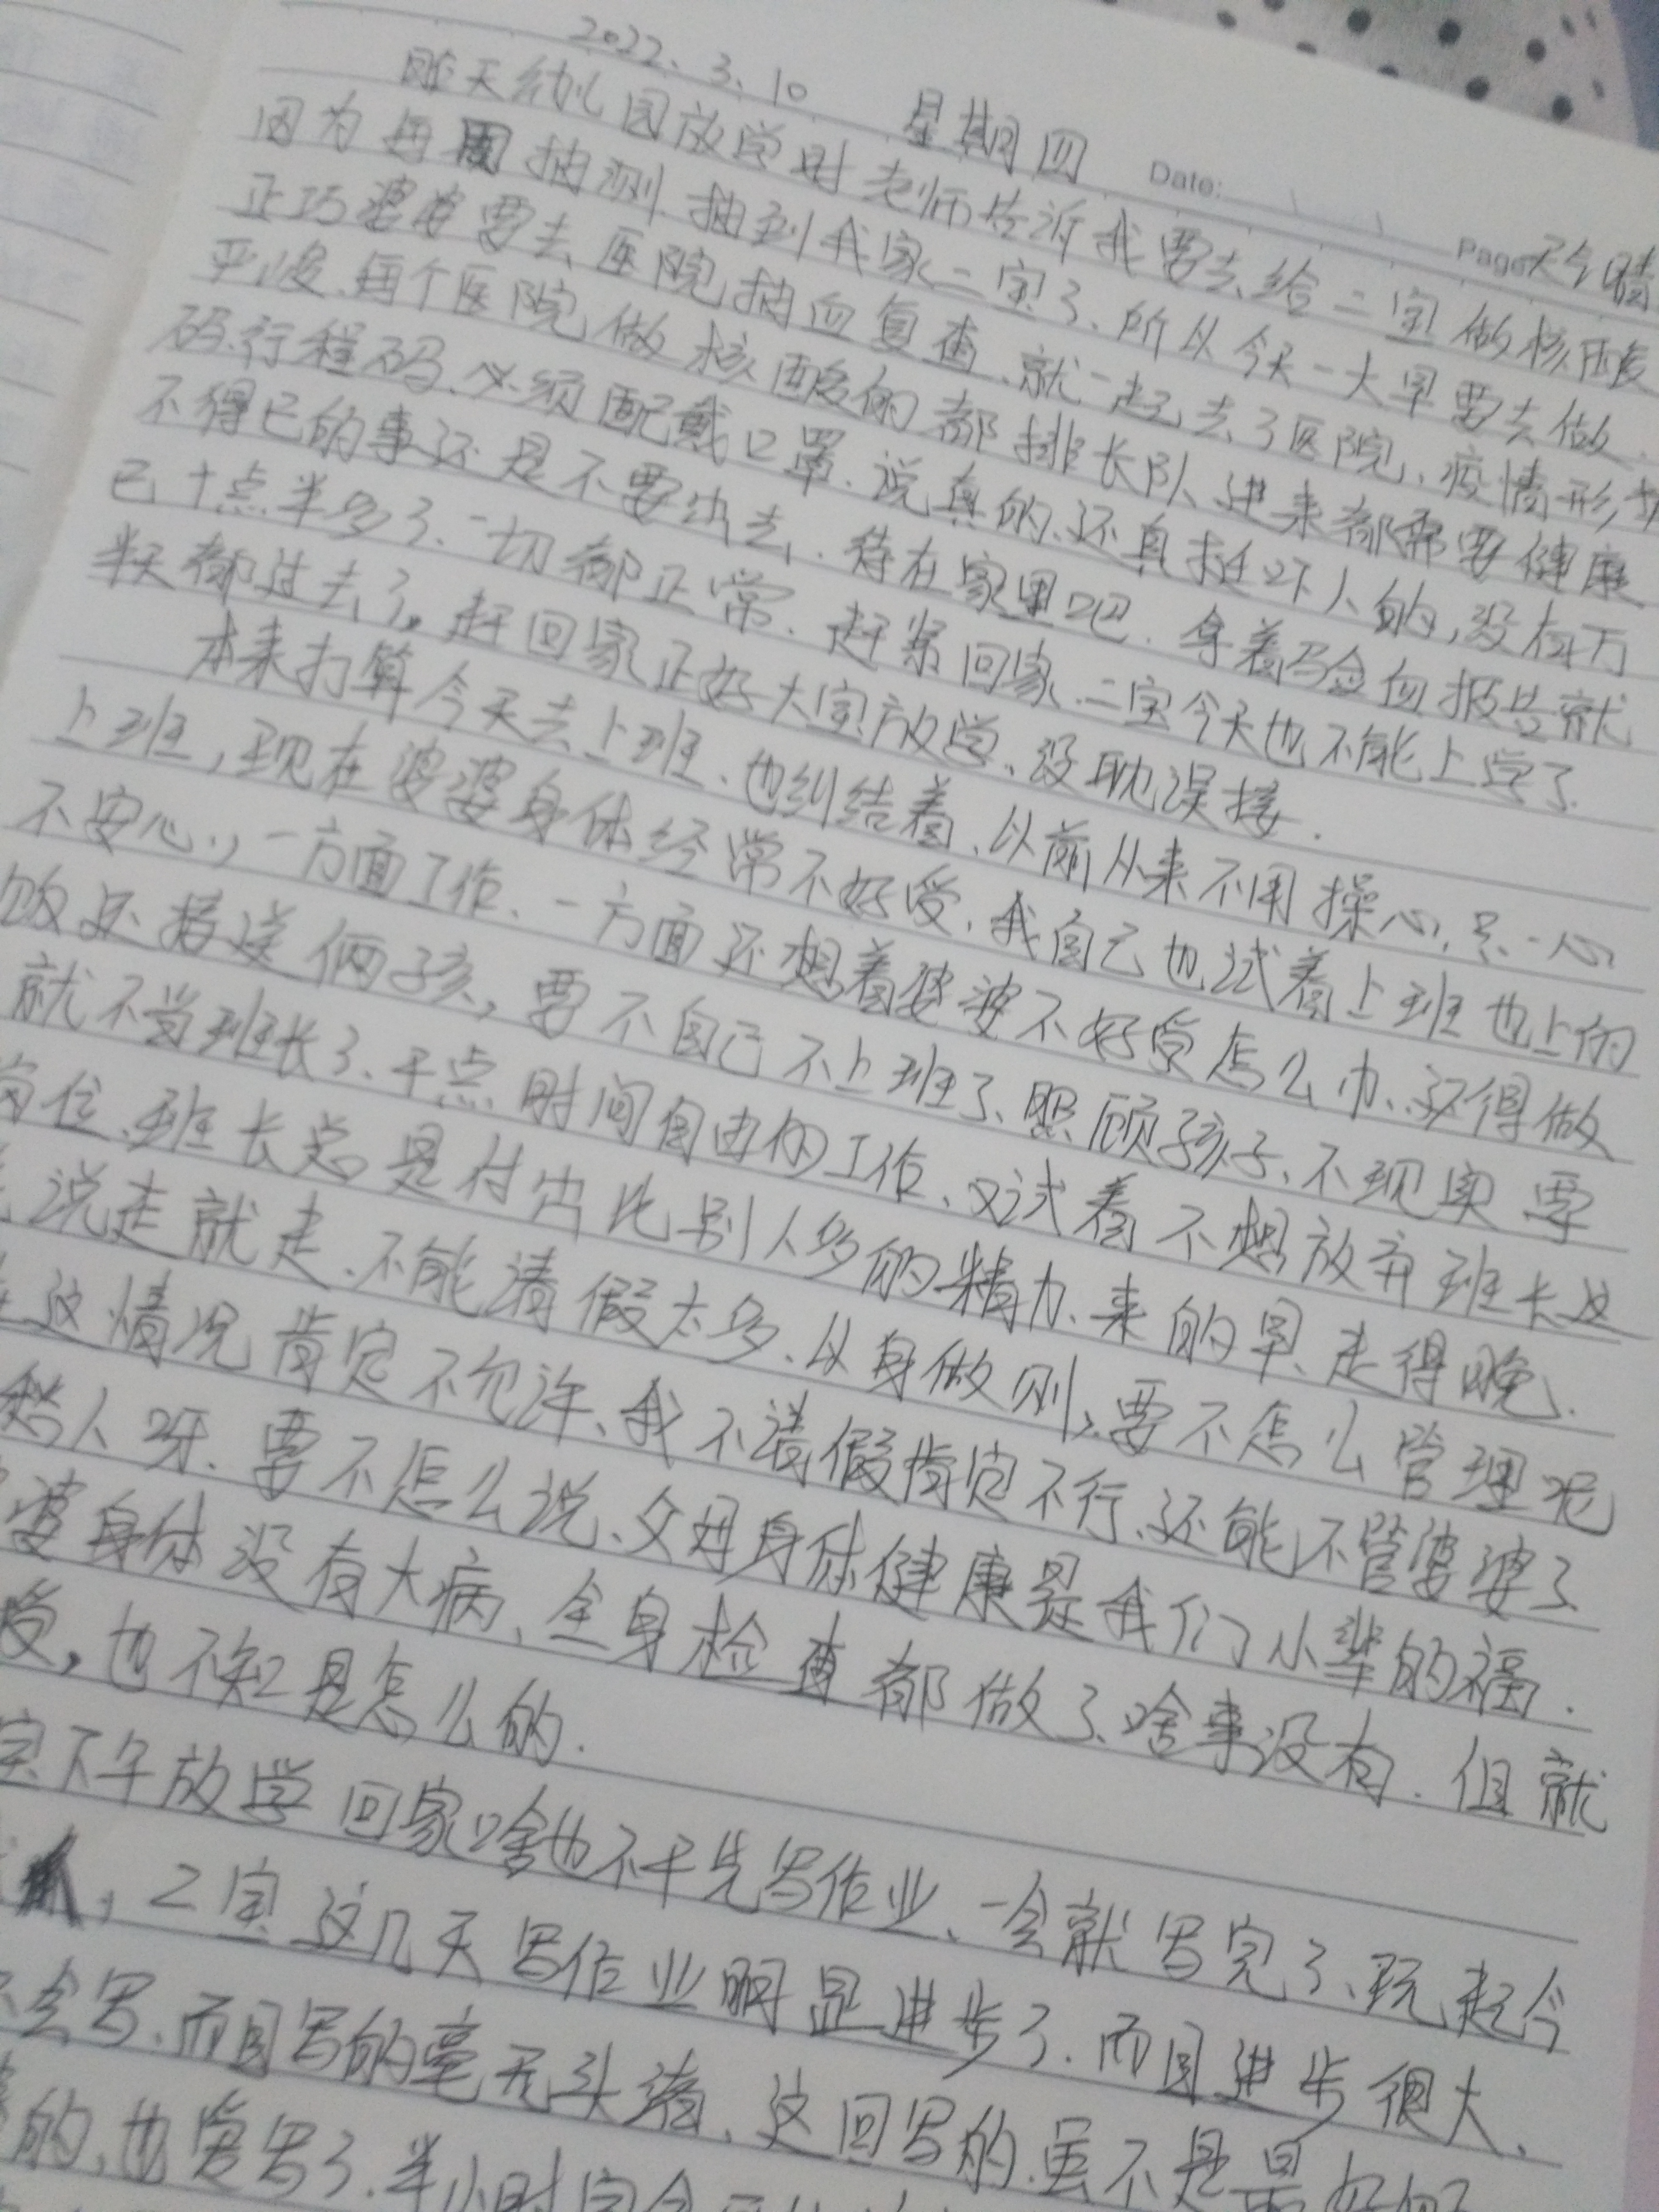 2022.3.10 星期四 Date: Page: 天气晴
昨天幼儿园放学时老师告诉我要去给二宝做核酸
因为每周抽测.抽到我家二宝了、所以今天一大早要去做.
正巧婆婆要去医院抽血复查、就一起去了医院、疫情形势
严峻、每个医院做核酸的都排长队、进来都需要健康
码.行程码、必须配戴口罩.说真的、还真挺吓人的,没有万
不得已的事还是不要出去.待在家里吧.拿着验血报告就
已十点半多了、一切都正常.赶紧回家、二宝今天也不能上学了.
半天都过去了。赶回家正好大宝放学、没耽误接.
本来打算今天去上班、也纠结着、以前从来不用操心,只一心
上班,现在婆婆身体经常不好受,我自己也试着上班也上的
不安心,一方面工作、一方面还想着婆婆不好受怎么办、还得做
饭还接送俩孩,要不自己不上班了、照顾孩子、不现实要
就不当班长了、干点时间自由的工作、又试着不想放弃班长这
岗位、班长总是付出比别人多的精力、来的早、走得晚.
说走就走.不能请假太多、以身做则,要不怎么管理呢
这情况肯定不允许、我不请假肯定不行、还能不管婆婆了
人呀.要不怎么说、父母身体健康是我们小辈的福.
婆身体没有大病、全身检查都做了、啥事没有.但就
受,也不知是怎么的.
宝下午放学回家啥也不干先写作业、一会就写完了、玩起今
,二宝这几天写作业明显进步了.而且进步很大、
会写.而且写的毫无头绪、这回写的.虽不是最好
的,也会写了.半小时